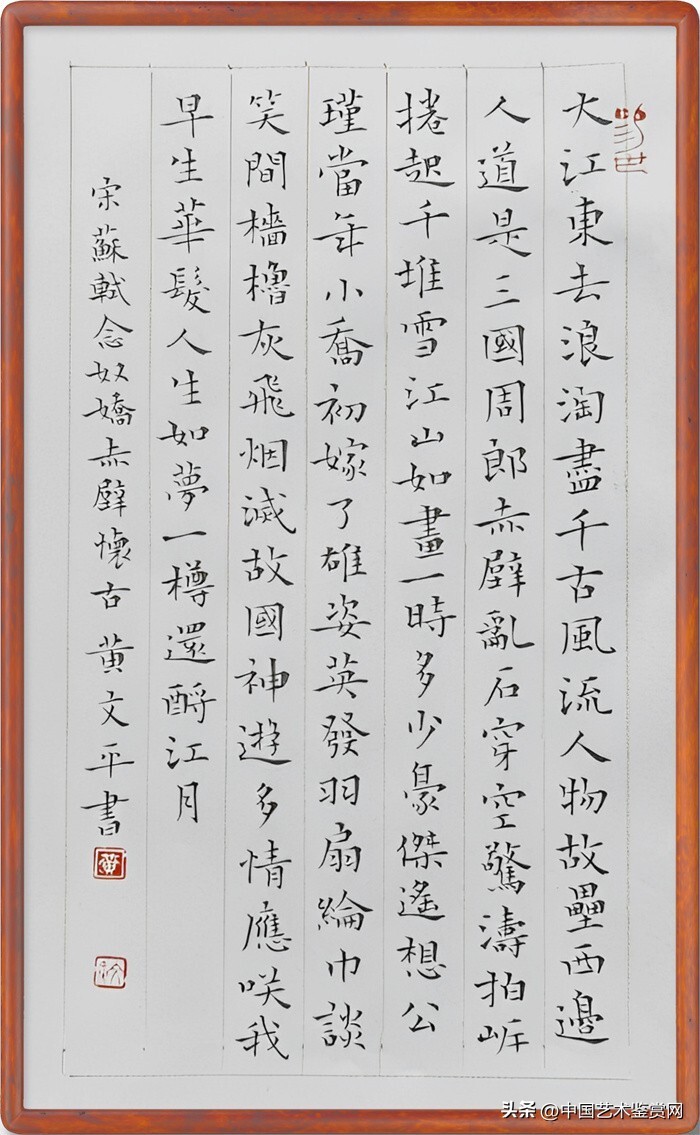 大江東去浪淘盡千古風流人物故壘西邊
人道是三國周郎赤壁亂石穿空驚濤拍岸
捲起千堆雪江山如畫一時多少豪傑遙想公
瑾當年小喬初嫁了雄姿英發羽扇綸巾談
笑間檣櫓灰飛烟滅故國神遊多情應咲我
早生華髮人生如夢一樽還酹江月
宋蘇軾念奴嬌赤壁懷古 黄文平書
黄
头条 @中国艺术鉴赏网